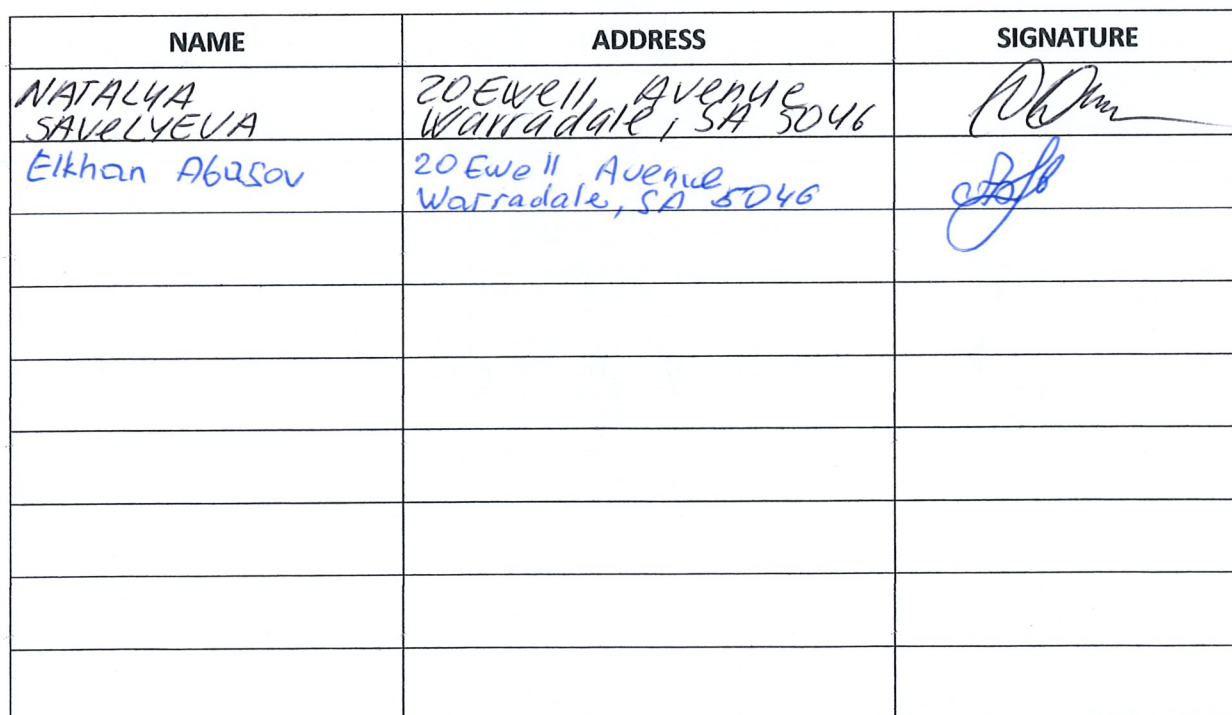 NAME ADDRESS SIGNATURE
NATALYA
SAVELYEVA
20 Ewell Avenue
Warradale, SA 5046
Elkhan Abasov
20 Ewell Avenue
Warradale, SA 5046